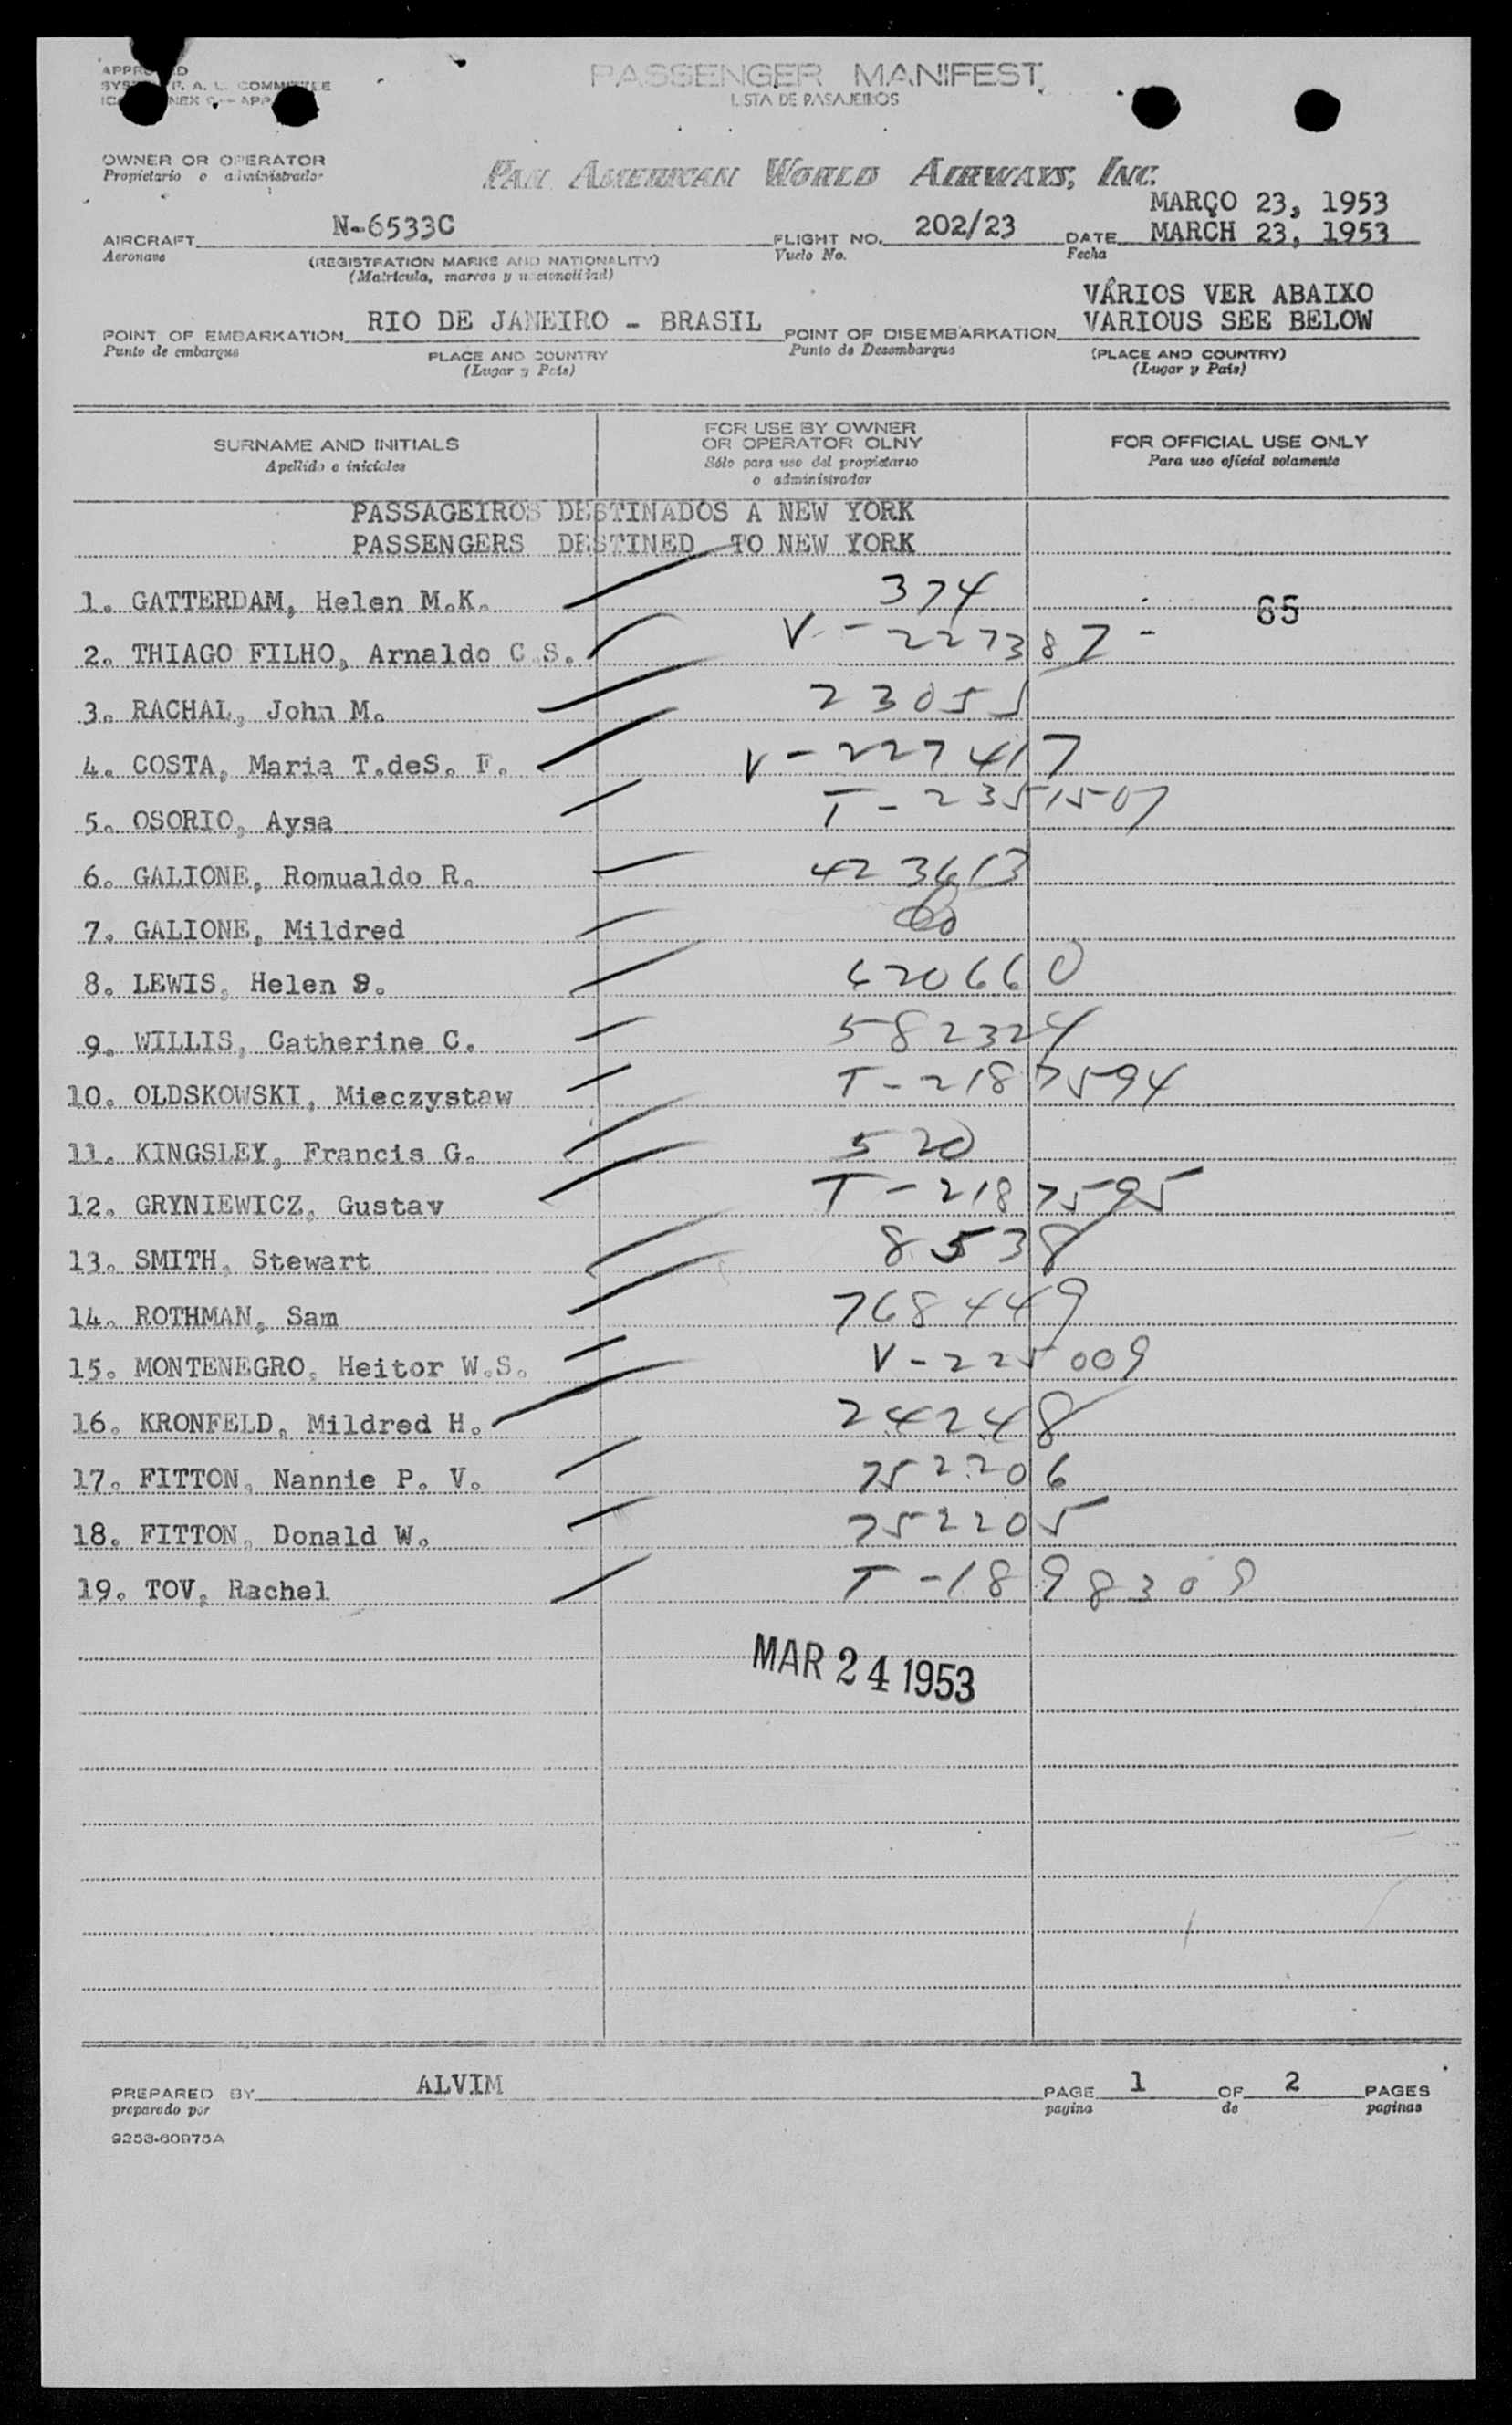 PASSENGER MANIFEST
LISTA DE PASAJEROS
OWNER OR OPERATOR
Propietario o administrador
PAN AMERICAN WORLD AIRWAYS, INC.
MARÇO 23, 1953
AIRCRAFT N-6533C FLIGHT NO. 202/23 DATE MARCH 23, 1953
Aeronave (REGISTRATION MARKS AND NATIONALITY) Vuelo No. Fecha
(Matricula, marcas y nacionalidad)
VÂRIOS VER ABAIXO
POINT OF EMBARKATION RIO DE JANEIRO - BRASIL POINT OF DISEMBARKATION VARIOUS SEE BELOW
Punto de embarque PLACE AND COUNTRY Punto de Desembarque (PLACE AND COUNTRY)
(Lugar y Pais) (Lugar y Pais)
SURNAME AND INITIALS
Apellido e iniciales
FOR USE BY OWNER
OR OPERATOR OLNY
Sólo para uso del propietario
o administrador
FOR OFFICIAL USE ONLY
Para uso oficial solamente
PASSAGEIROS DESTINADOS A NEW YORK
PASSENGERS DESTINED TO NEW YORK
1. GATTERDAM, Helen M.K. 374 65
2. THIAGO FILHO, Arnaldo C.S. V-227387-
3. RACHAL, John M. 23055
4. COSTA, Maria T.deS. F. V-227417
5. OSORIO, Aysa T-2351507
6. GALIONE, Romualdo R. 423613
7. GALIONE, Mildred
8. LEWIS, Helen S. 420660
9. WILLIS, Catherine C. 582324
10. OLDSKOWSKI, Mieczystaw T-2187594
11. KINGSLEY, Francis G. 520
12. GRYNIEWICZ, Gustav T-2187595
13. SMITH, Stewart 8538
14. ROTHMAN, Sam 768449
15. MONTENEGRO, Heitor W.S. V-225009
16. KRONFELD, Mildred H. 24248
17. FITTON, Nannie P. V. 752206
18. FITTON, Donald W. 752205
19. TOV, Rachel T-1898308
MAR 24 1953
PREPARED BY ALVIM PAGE 1 OF 2 PAGES
preparado por pagina de paginas
9253-60975A